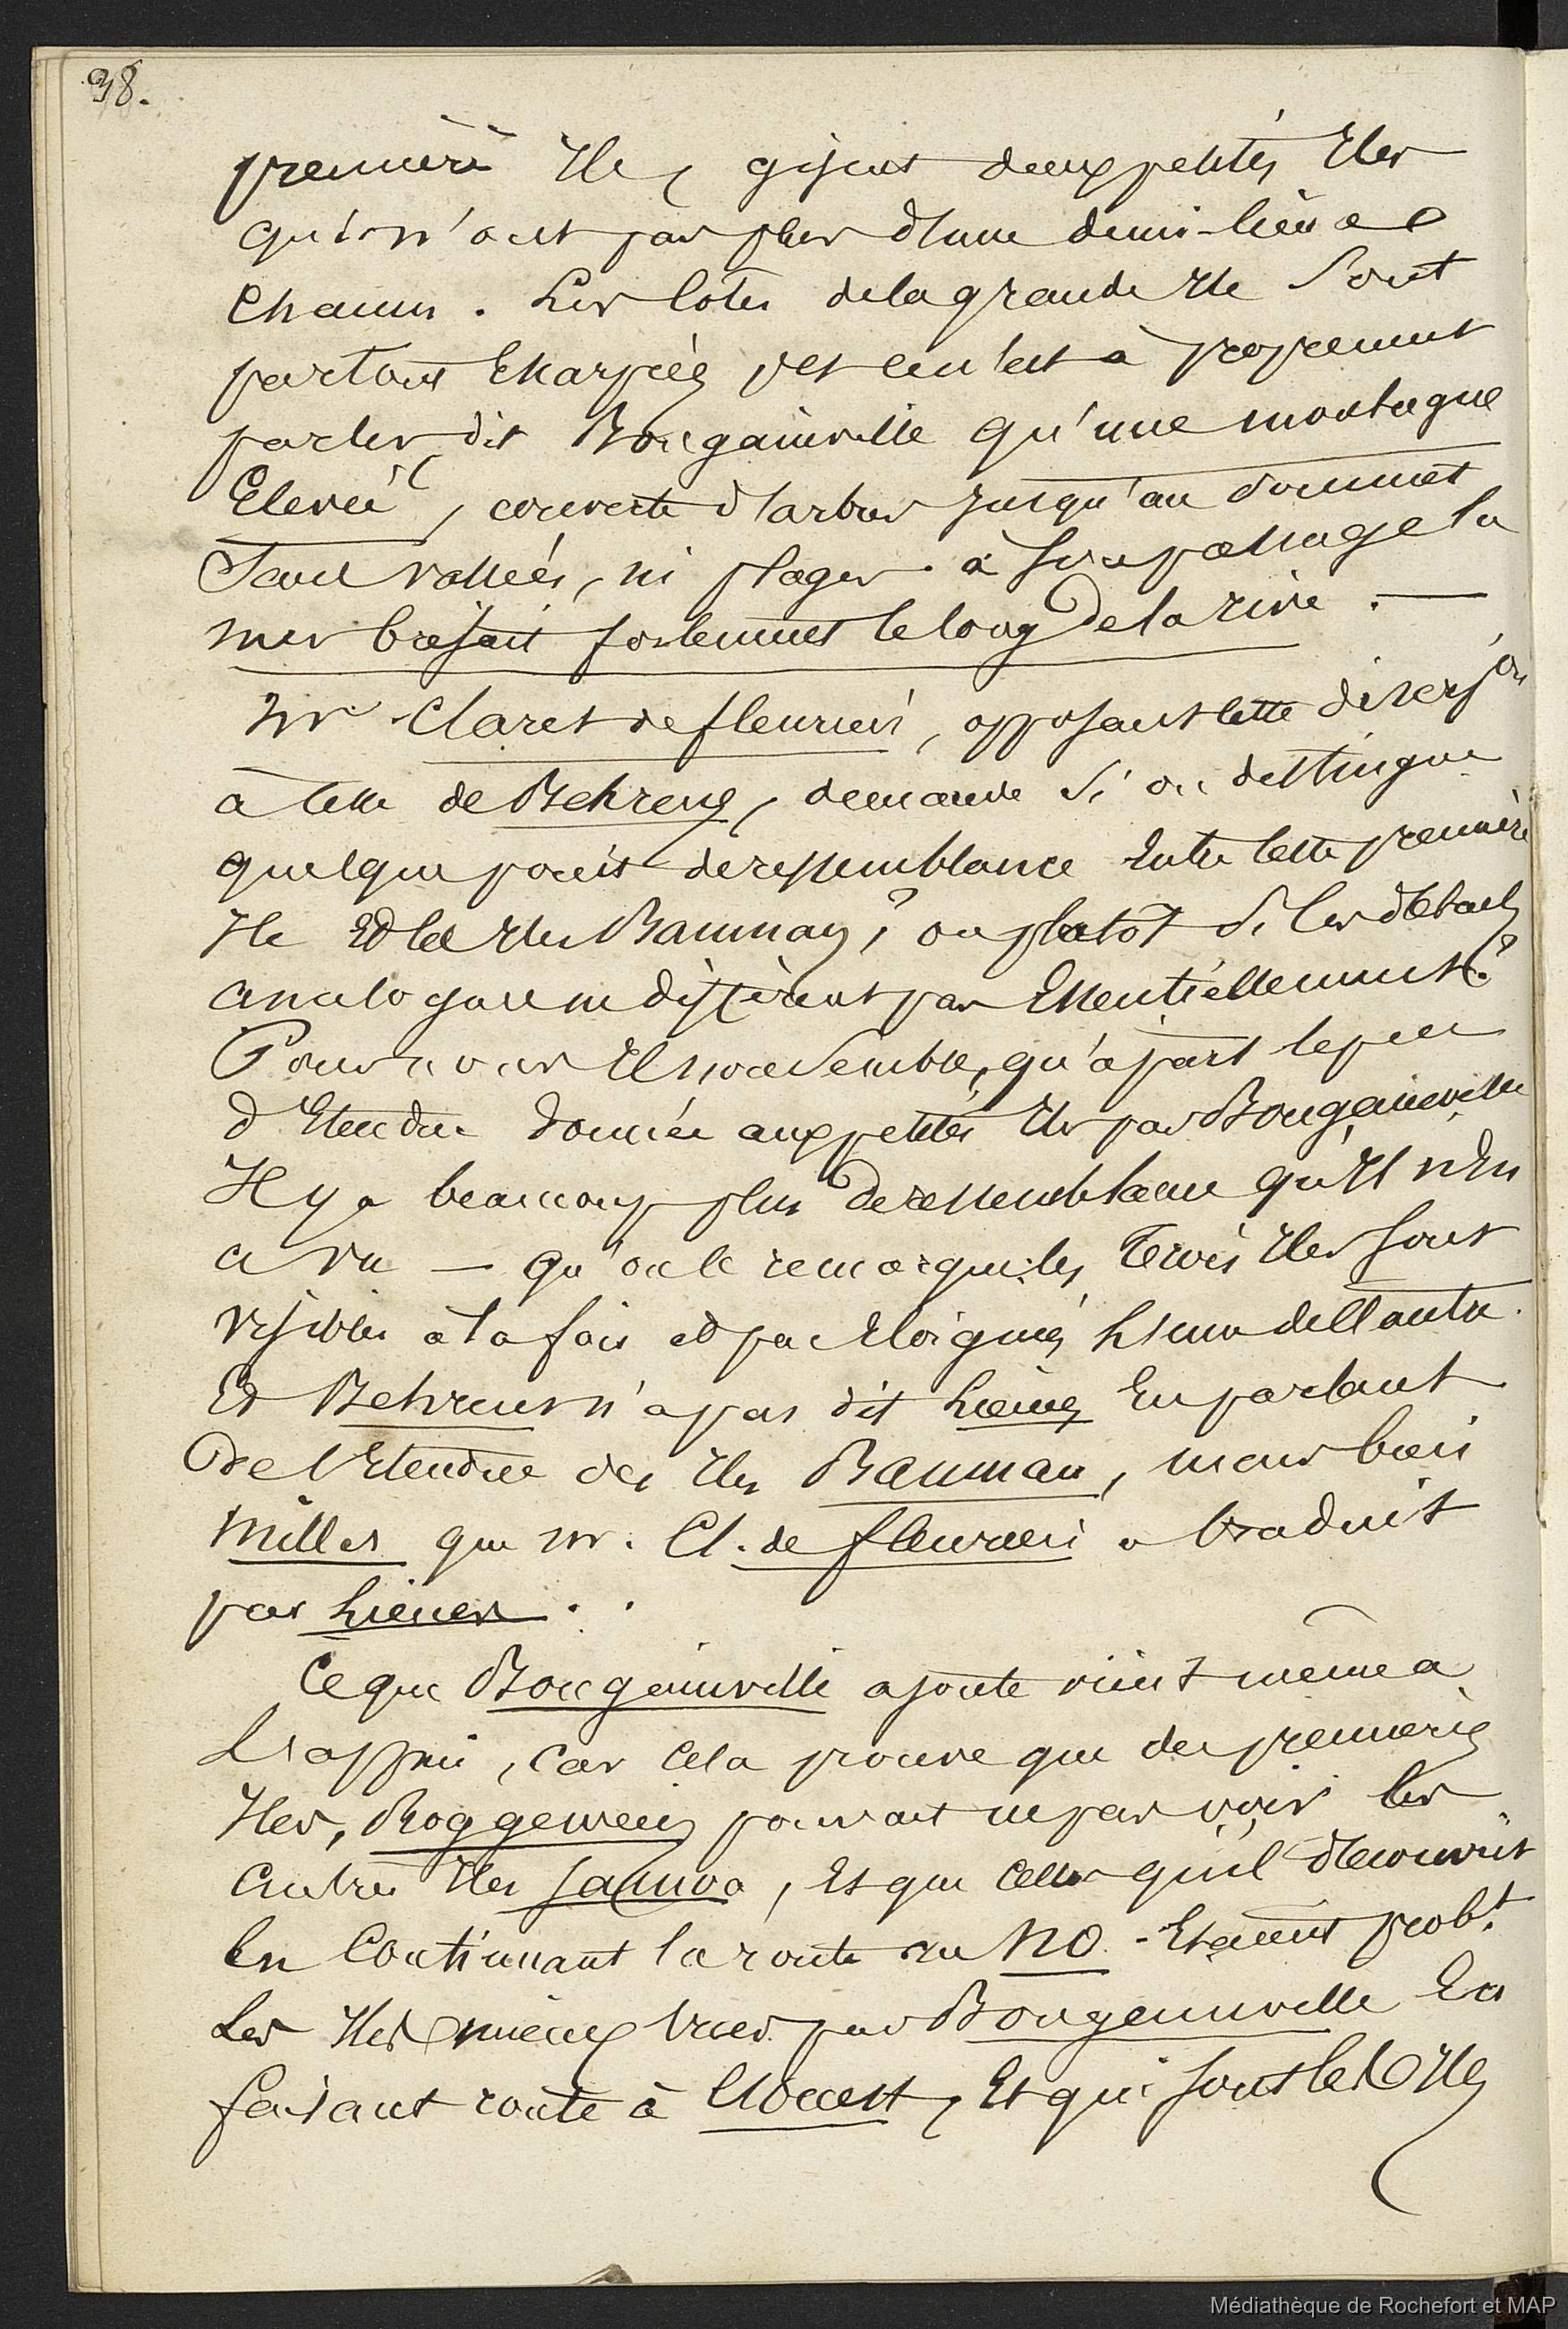 98.
première Ile, gisent deux petites Iles
qui n'ont pas plus d'une demi-lieue
chacune. Les côtes de la grande Ile sont
partout Escarpées, et ce n'est à proprement
parler, dit Bougainville qu'une montagne
Elevée, couverte d'arbres jusqu'au sommet
sans vallées, ni plages. à son passage la
mer brisait fortement le long de la rive. —
Mr Claret de fleurieu, opposant cette descript.on
à celle de Behrens, demande si on distingue
quelque point de ressemblance Entre cette première
Ile Et les Iles Bauman, ou plutôt si les détails
analogues ne diffèrent pas Essentiellement?
Pour nous Il nous semble, qu'à part le peu
d'Etendue donnée aux petites Iles par Bougainville
Il y a beaucoup plus de ressemblance qu'Il n'En
a vu — qu'on le remarque: les trois Iles sont
visibles à la fois et peu Eloignées L'une de l'autre.
Et Behrens n'a pas dit Lieues En parlant
de l'Etendue des Iles Bauman, mais bien
Milles que Mr. Cl. de fleurieu a traduit
par Lieues..
Ce que Bougainville ajoute vient même à
L'appui, car cela prouve que des premières
Iles, Roggeween pouvait ne pas voir les
autres Iles Samoa, Et que celles qu'il découvrit
En Continuant la route au NO. Etaient prob.t
Les Iles mieux vues par Bougainville En
faisant route à l'Ouest, Et qui sont les Iles
Médiathèque de Rochefort et MAP